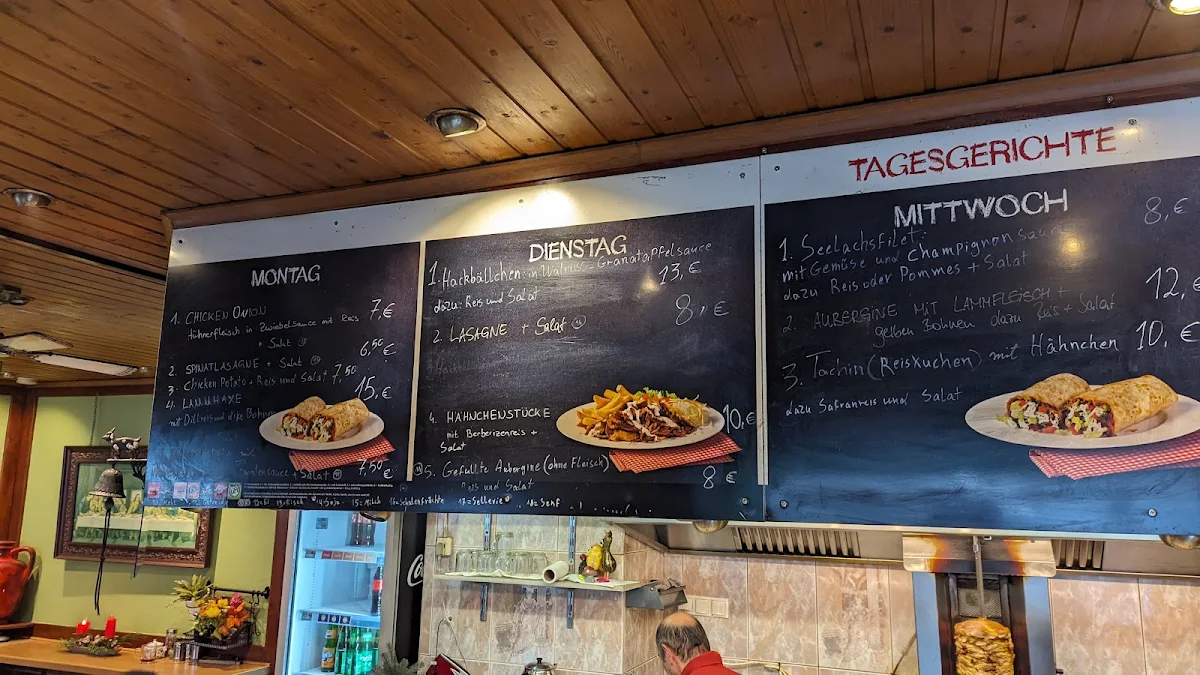 TAGESGERICHTE
MONTAG
1. CHICKEN ONION 7,€
Hühnerfleisch in Zwiebelsauce mit Reis
+ Salat
2. SPINATLASAGNE + Salat 6,50 €
3. Chicken Potato + Reis und Salat 7,50
4. LAMMHAXE 15,€
mit Dillreis und dike Bohnen
+ Salat 7,50 €
DIENSTAG
1. Hackbällchen in Walnuss-Granatapfelsauce
dazu Reis und Salat 13,€
2. LASAGNE + Salat 8,€
4. HÄHNCHENSTÜCKE 10,€
mit Berberizenreis +
Salat
5. Gefüllte Aubergine (ohne Fleisch)
Reis und Salat 8 €
MITTWOCH
1. Seelachsfilet: 8,€
mit Gemüse und Champignonsauce
dazu Reis oder Pommes + Salat
2. AUBERGINE MIT LAMMFLEISCH + 12,€
gelben Bohnen dazu Reis + Salat
3. Tachin (Reiskuchen) mit Hähnchen 10,€
dazu Safranreis und Salat
Coca